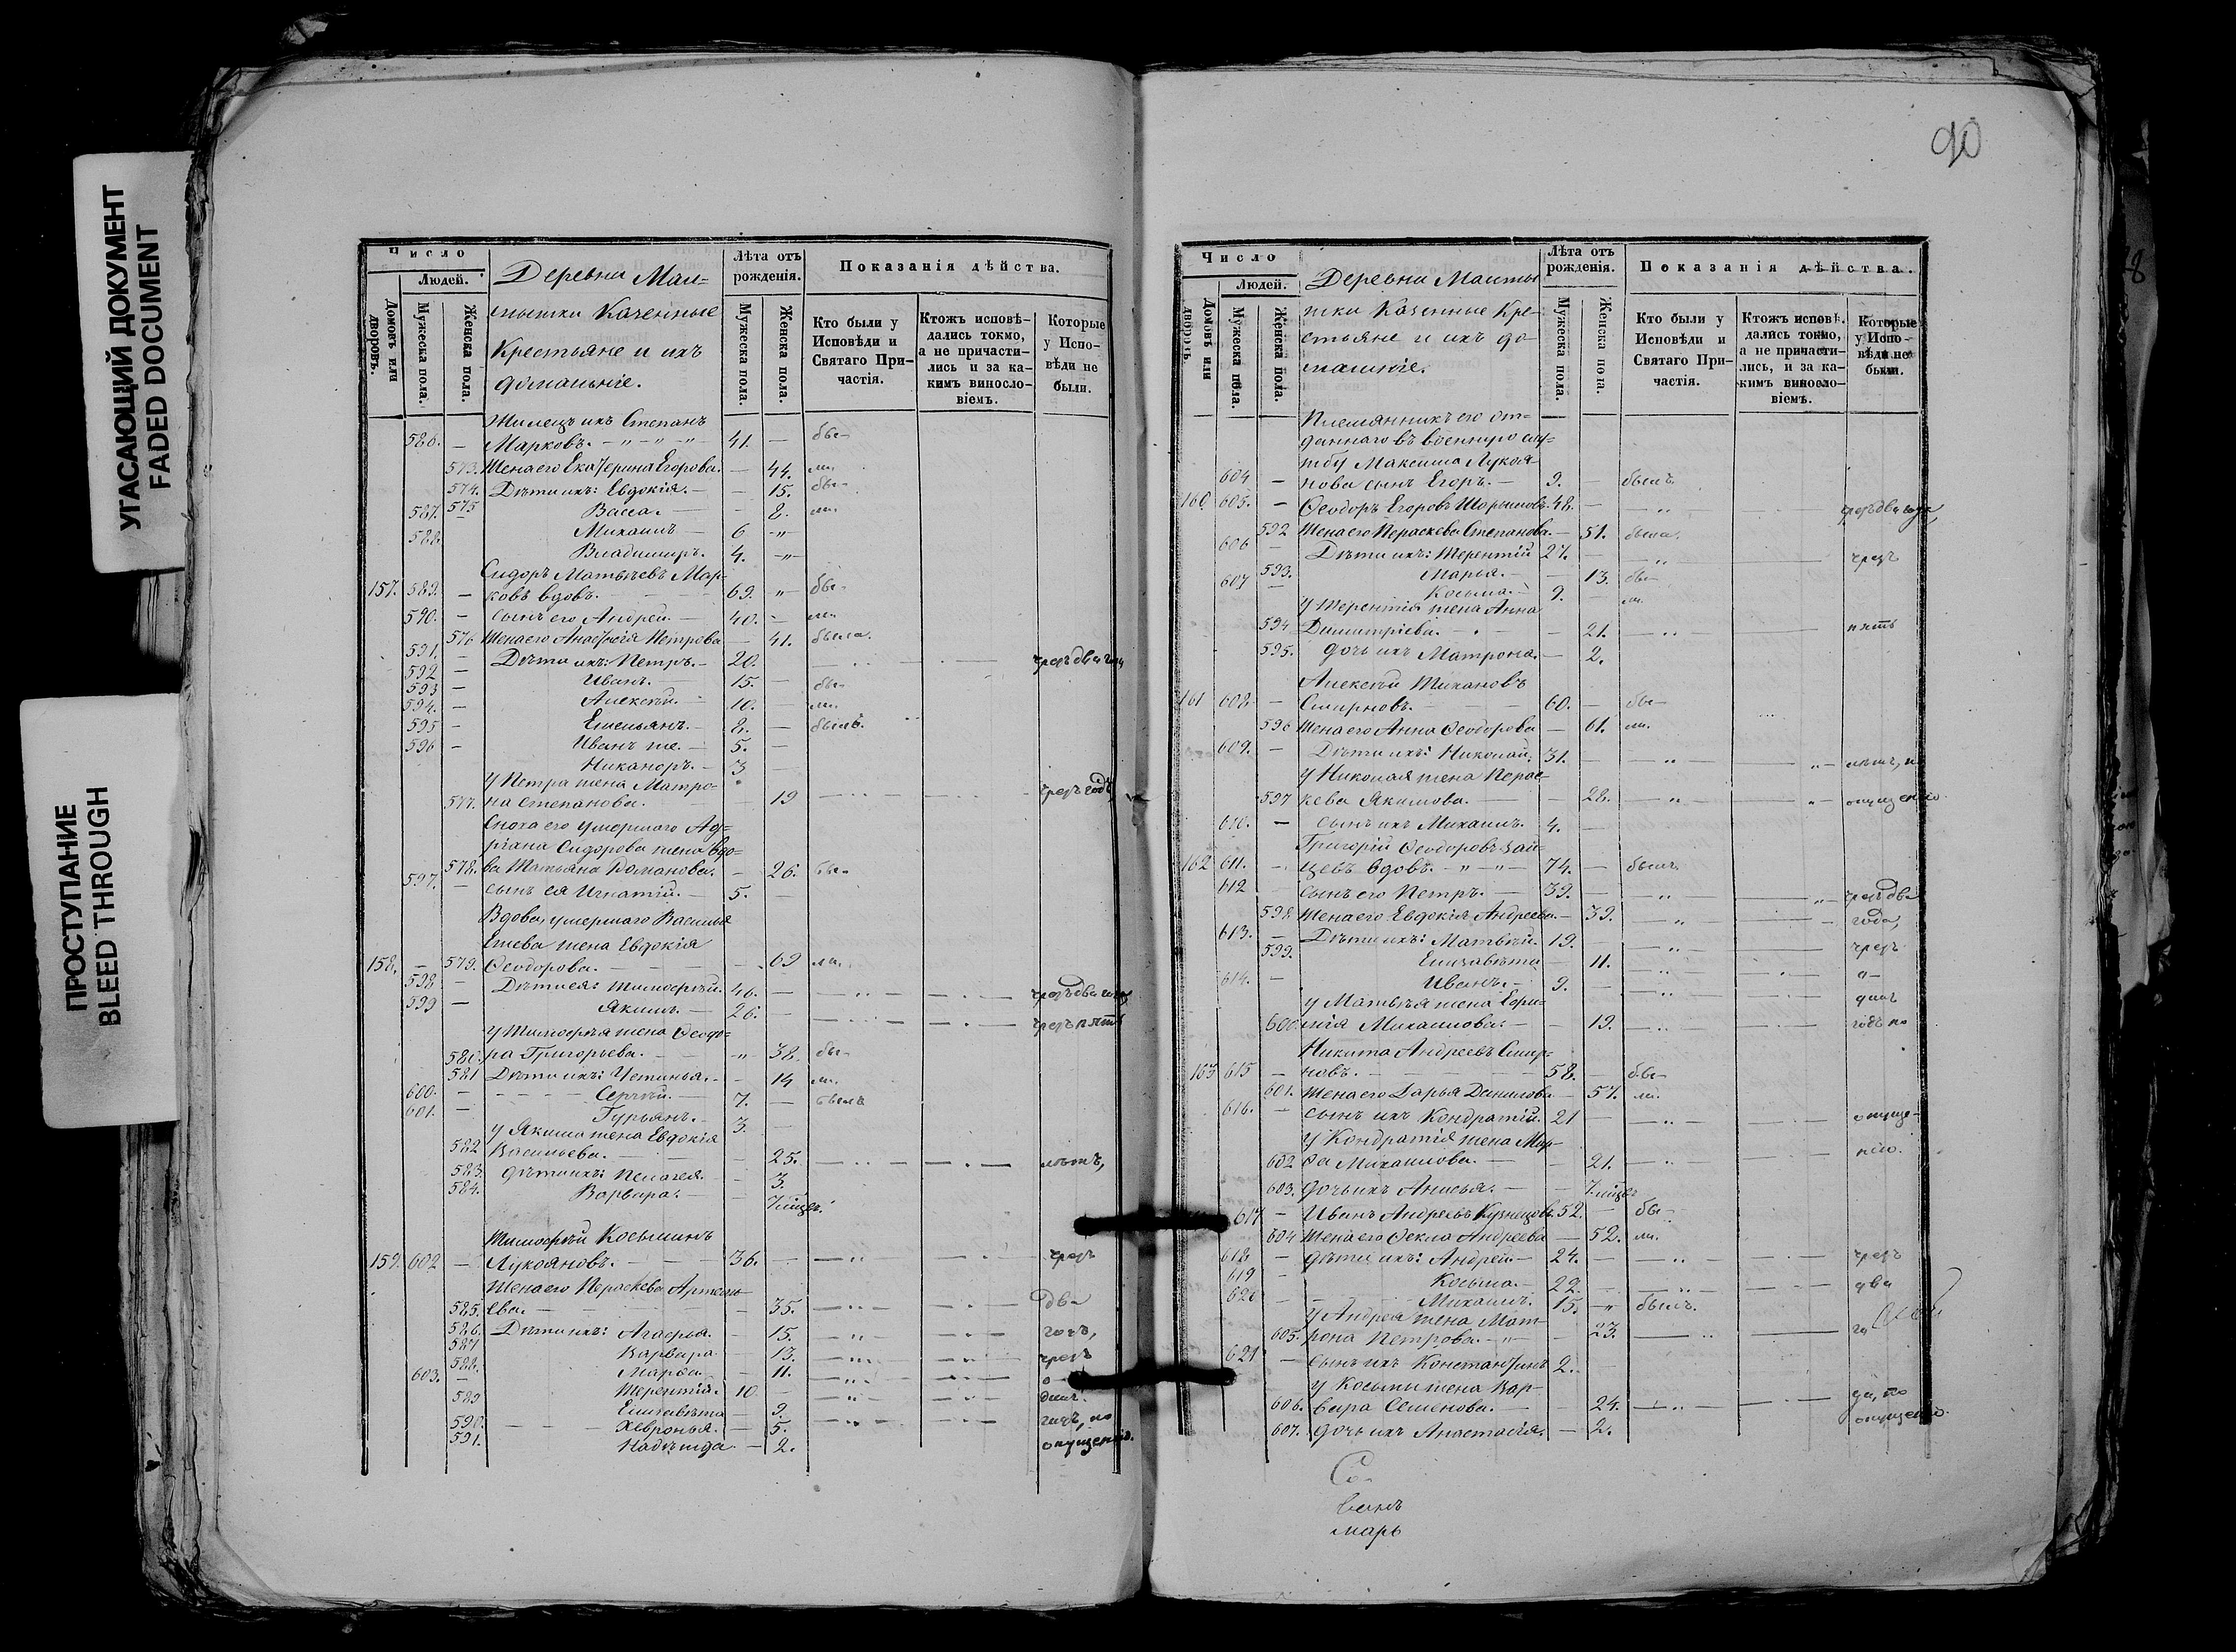 УГАСАЮЩИЙ ДОКУМЕНТ
FADED DOCUMENT
ПРОСТУПАНИЕ
BLEED THROUGH
Число
Людей.
Домовъ или дворовъ.
Мужеска пола.
Женска пола.
Деревни
Казенные
Крестьяне и ихъ
домашніе.
Лѣта отъ рожденія.
Мужеска пола.
Женска пола.
Показанія дѣйства.
Кто были у Исповѣди и Святаго Причастія.
Ктожъ исповѣдались токмо, а не причастились и за какимъ винословіемъ.
Которые у Исповѣди не были.
Жилецъ ихъ Степанъ
586. — Марковъ. 41. — бы-
573. Жена его Екатерина Егорова. — 44. ли.
574. Дѣти ихъ: Евдокія. — 15. бы-
575 Васса. — 8. ли.
587. Михаилъ — 6
588. Владимиръ. 4.
Сидоръ Матвѣевъ Мар-
157. 589. — ковъ вдовъ. 69. бы-
590. — сынъ его Андрей. 40. — ли.
576 Жена его Анастасія Петрова — 41. была.
591. — Дѣти ихъ: Петръ. — 20. чрезъ два года
592 — Иванъ. — 15. — бы-
593 — Алексѣй. — 10. — ли.
594. — Емельянъ. — 8. — былъ.
595 — Иванъ же. — 5. —
596 — Никаноръ. — 3
у Петра жена Матро-
577. на Степанова. 19 чрезъ годъ,
Сноха его умершаго Ад-
ріана Сидорова жена вдо-
578. ва Татьяна Романова. — 26. бы-
597. — сынъ ея Игнатій. — 5. —
Вдова, умершаго Василья
жена Евдокія
158. — 579. Ѳеодорова. — 69 ла.
598 — Дѣти ея: Тимоѳей. 46. — чрезъ два года
599 — Якимъ. — 26. — чрезъ пять
у Тимоѳея жена Ѳеодо-
580. ра Григорьева. 38. бы-
581 Дѣти ихъ: Устинья. — 14 ли.
600. — Сергѣй. — 7. — былъ
601. — Гурьянъ. — 3. —
у Якима жена Евдокія
582 Васильева. — 25. лѣтъ,
583. дѣти ихъ: Пелагея. — 3.
584. Варвара. — 7 мѣсц.
Тимоѳей Косьминъ
159. 602 — Лукояновъ. — 36. — чрезъ
Жена его Пераскева Артемь-
585. ева. — 35. два
586. Дѣти ихъ: Агаѳья. — 15. года,
587 Варвара. — 13. чрезъ
588. Марѳа. — 11.
603. — Терентій. 10. —
589 Елизавета — 9.
590. Хевронья. — 5. годъ, по
591. Надежда. — 2. опущенію.
90
Число
Людей.
Домовъ или дворовъ.
Мужеска пола.
Женска пола.
Деревни
Казенные Кре-
стьяне и ихъ до-
машніе.
Лѣта отъ рожденія.
Мужеска пола.
Женска пола.
Показанія дѣйства.
Кто были у Исповѣди и Святаго Причастія.
Ктожъ исповѣдались токмо, а не причастились, и за какимъ винословіемъ.
Которые у Исповѣди не были.
Племянникъ его от-
даннаго въ военную слу-
жбу Максима Лукоя-
604 — нова сынъ Егоръ. — 9. — былъ.
160 605. — Ѳеодоръ Егоровъ 48. — чрезъ два года,
592 Жена его Пераскева Степанова. — 51. была.
606 — Дѣти ихъ: Терентій 27. — чрезъ
593. Марья. — 13. бы-
607 — Косьма. — 9. — ли.
у Терентія жена Анна
594 Димитріева. — 21. пять
595. дочь ихъ Матрона. — 2.
Алексѣй
161 608. — Смирновъ. 60. — бы-
596 Жена его Анна Ѳеодорова — 61. ли.
609. — Дѣти ихъ: Николай. 31. — лѣтъ, по
у Николая жена Перас-
597 кева Якимова. — 28. опущенію.
610. — сынъ ихъ Михаилъ. 4. —
Григорій Ѳеодоровъ Зай-
162 611. — цевъ вдовъ. 74. — былъ.
612 сынъ его Петръ. — 39. — чрезъ два
598 Жена его Евдокія Андреева. — 39. года,
613. — Дѣти ихъ: Матвѣй. 19. — чрезъ
599. Елизавета — 11.
614. — Иванъ. — 9. —
у Матвѣя жена
600. Михаилова. — 19. годъ по
Никита Андреевъ Смир-
163 615 — новъ. 58. — бы-
601. Жена его Дарья Данилова — 57. ли.
616. — сынъ ихъ Кондратій. 21 опуще-
у Кондратія жена Мар-
602 ѳа Михаилова. — 21. нію.
603. дочь ихъ Анисья. — 7 мѣсц.
617 — Иванъ Андреевъ Кузнецовъ. 52. — бы-
604 Жена его Ѳекла Андреева — 52. ли.
618 — дѣти ихъ: Андрей — 24. — чрезъ
619 — Косьма. — 22. два
620 — Михаилъ. 15. былъ.
у Андрея жена Мат-
605. рона Петрова. — 23.
621 — сынъ ихъ Константинъ 2. —
у Косьмы жена Вар-
606. вара Семенова. — 24. да, по
607. дочь ихъ Анастасія. — 2. опущенію.